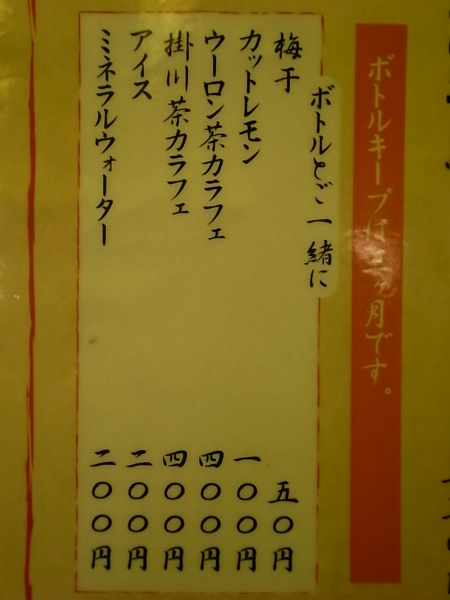 ボトルキープは三ヶ月です。
ボトルとご一緒に
梅干 五〇円
カットレモン 一〇〇円
ウーロン茶カラフェ 四〇〇円
掛川茶カラフェ 四〇〇円
アイス 二〇〇円
ミネラルウォーター 二〇〇円